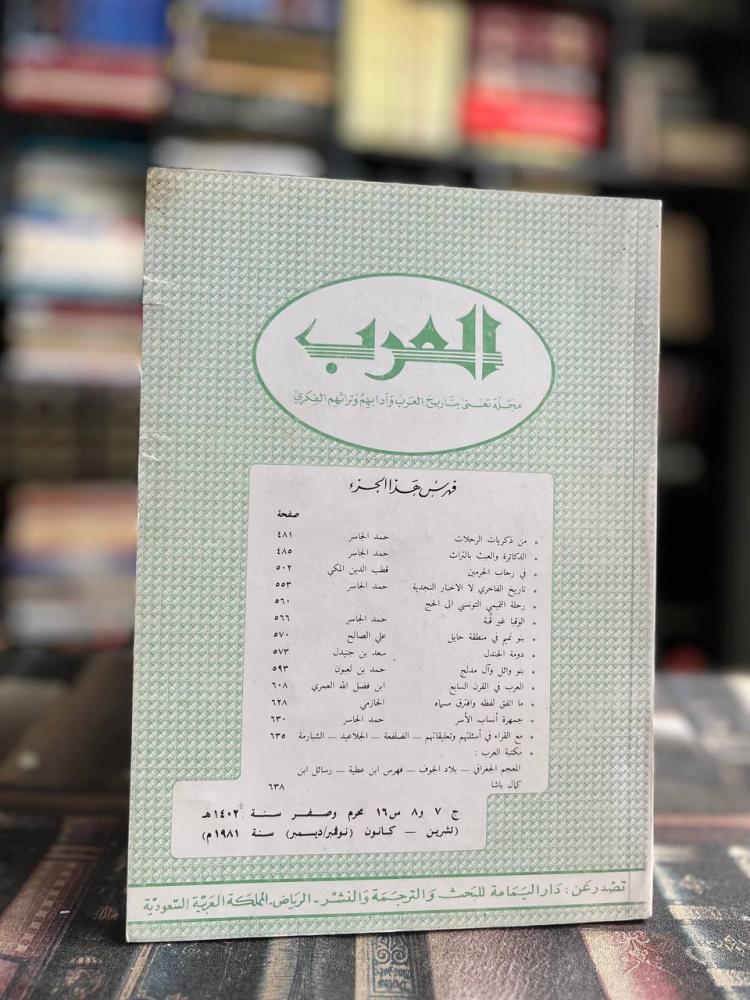 العرب
مجلة تعنى بتاريخ العرب وآدابهم وتراثهم الفكري
فهرس هذا الجزء
صفحة
من ذكريات الرحلات حمد الجاسر ٤٨١
الدكاترة والعبث بالتراث حمد الجاسر ٤٨٥
في رحاب الحرمين قطب الدين المكي ٥٠٢
تاريخ الفاخري لا الاخبار النجدية حمد الجاسر ٥٥٣
رحلة التميمي التونسي الى الحج ٥٦٠
الوقبا غير قُبة حمد الجاسر ٥٦٦
بنو تميم في منطقة حايل علي الصالح ٥٧٠
دومة الجندل سعد بن جنيدل ٥٧٣
بنو وائل وآل مدلج حمد بن لعبون ٥٩٣
العرب في القرن السابع ابن فضل الله العمري ٦٠٨
ما اتفق لفظه وافترق مسماه الحازمي ٦٢٨
جمهرة أنساب الأسر حمد الجاسر ٦٣٠
مع القراء في أسئلتهم وتعليقاتهم ــ الصلفعة ــ الجلاعيد ــ الشيارمة ٦٣٥
مكتبة العرب :
المعجم الجغرافي ــ بلاد الجوف ــ فهرس ابن عطية ــ رسائل ابن
كمال باشا ٦٣٨
ج ٧ و٨ س١٦ محرم وصفر سنة ١٤٠٢هـ
(تشرين ــ كانون (نوفمبر/ديسمبر) سنة ١٩٨١م)
تصدر عن : دار اليمامة للبحث والترجمة والنشر - الرياض - المملكة العربية السعودية